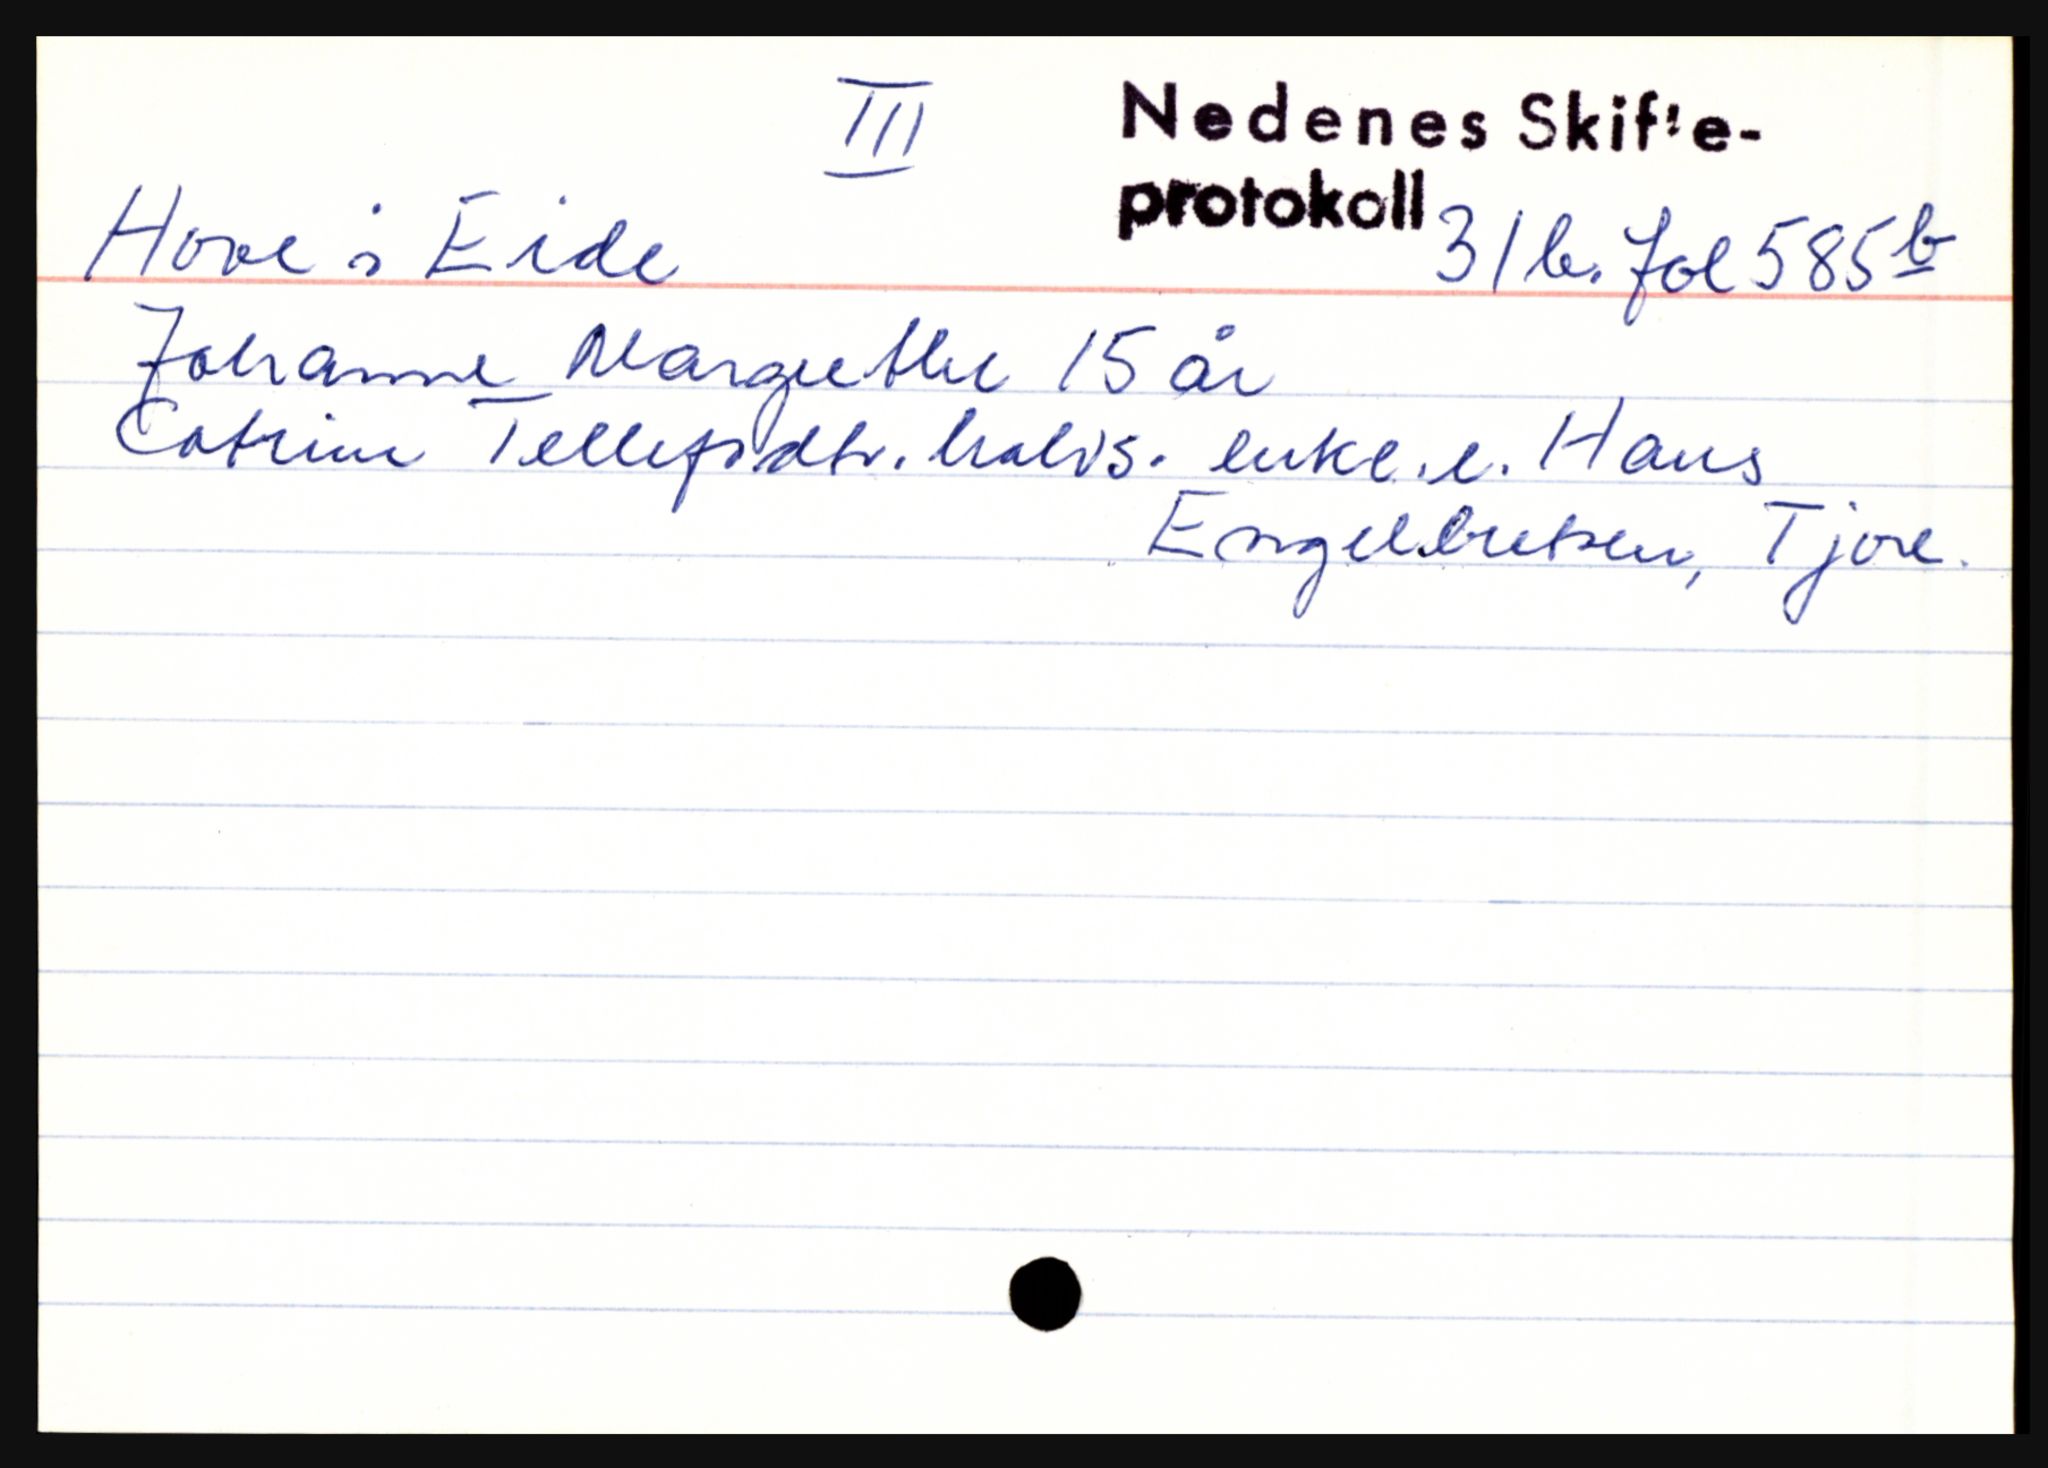 III
Nedenes Skifte-
protokoll 31b. fol 585b
Hove i Eide
Johanne Margrethe 15 år
Catrine Tellefsdtr. halvs. enke. e. Hans
Engelbretsen, Tjore.